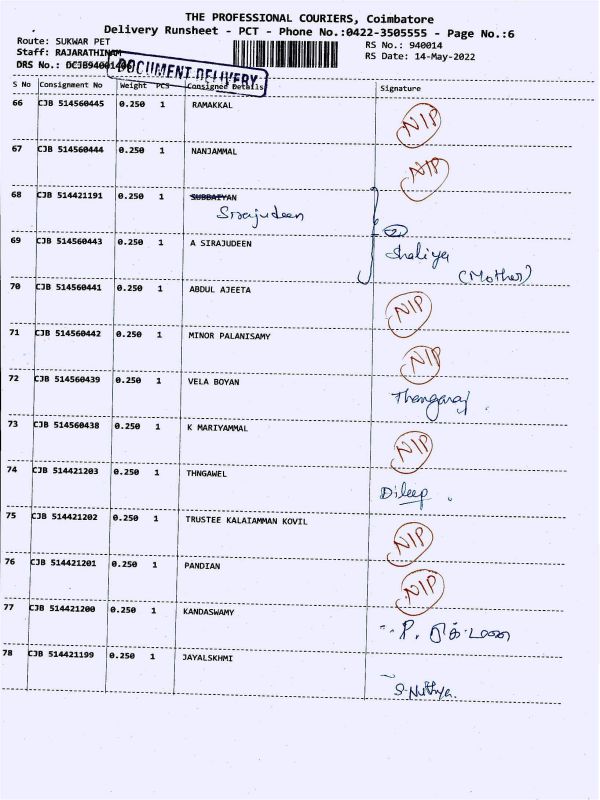 THE PROFESSIONAL COURIERS, Coimbatore
Delivery Runsheet - PCT - Phone No.:0422-3505555 - Page No.:6
Route: SUKWAR PET
RS No.: 940014
Staff: RAJARATHINAM
RS Date: 14-May-2022
DRS No.:
DOCUMENT DELIVERY
S No Consignment No Weight PCS Consignee Details Signature
66 CJB 514560445 0.250 1 RAMAKKAL NIP
67 CJB 514560444 0.250 1 NANJAMMAL NIP
68 CJB 514421191 0.250 1 SUBBAIYAN
Sirajudeen
69 CJB 514560443 0.250 1 A SIRAJUDEEN Shaliya
(Mother)
70 CJB 514560441 0.250 1 ABDUL AJEETA NIP
71 CJB 514560442 0.250 1 MINOR PALANISAMY NIP
72 CJB 514560439 0.250 1 VELA BOYAN Thangaraj
73 CJB 514560438 0.250 1 K MARIYAMMAL NIP
74 CJB 514421203 0.250 1 THNGAWEL Dileep
75 CJB 514421202 0.250 1 TRUSTEE KALAIAMMAN KOVIL NIP
76 CJB 514421201 0.250 1 PANDIAN NIP
77 CJB 514421200 0.250 1 KANDASWAMY P.
78 CJB 514421199 0.250 1 JAYALSKHMI S. Nithya